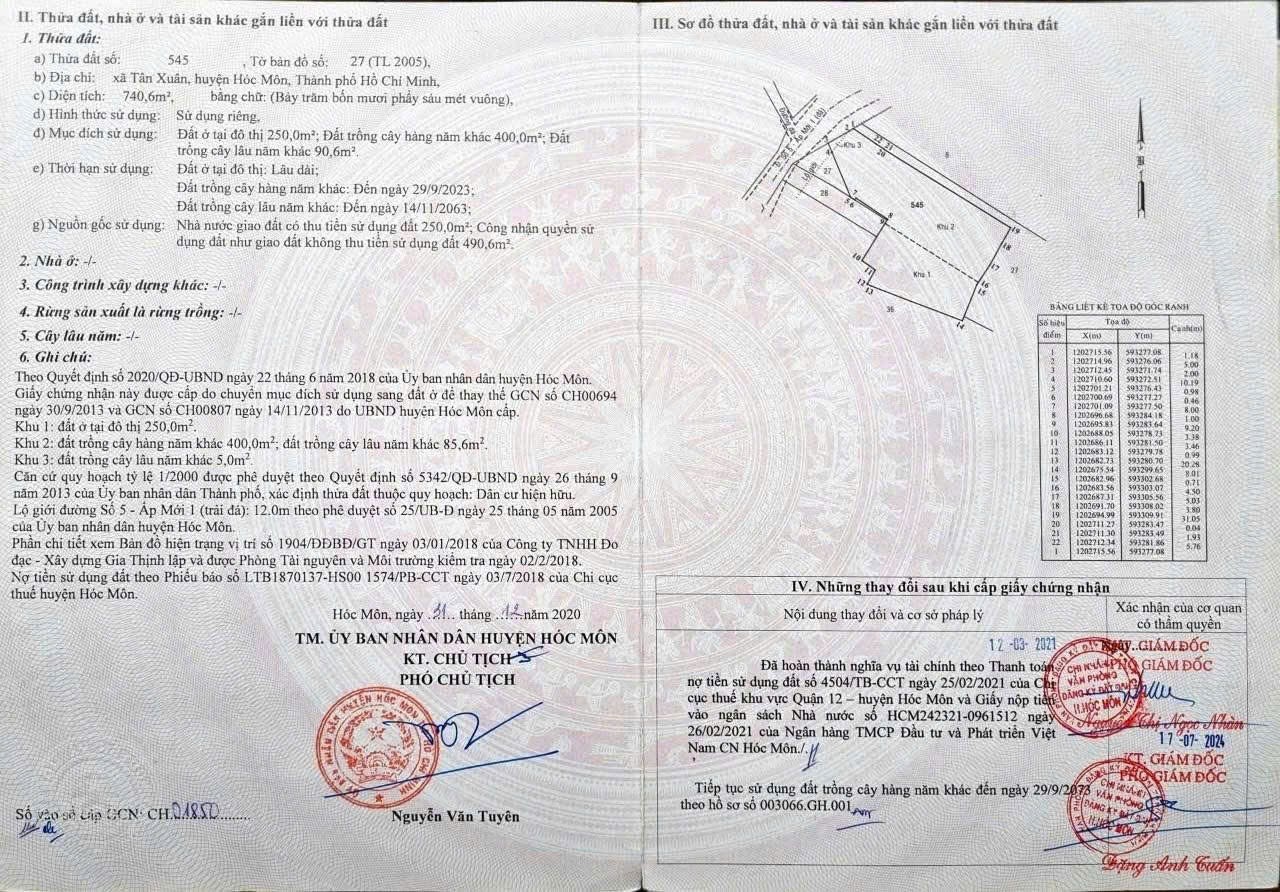 II. Thửa đất, nhà ở và tài sản khác gắn liền với thửa đất
1. Thửa đất:
a) Thửa đất số: 545 , Tờ bản đồ số: 27 (TL 2005),
b) Địa chỉ: xã Tân Xuân, huyện Hóc Môn, Thành phố Hồ Chí Minh,
c) Diện tích: 740,6m², bằng chữ: (Bảy trăm bốn mươi phẩy sáu mét vuông),
d) Hình thức sử dụng: Sử dụng riêng,
đ) Mục đích sử dụng: Đất ở tại đô thị 250,0m²; Đất trồng cây hàng năm khác 400,0m²; Đất
trồng cây lâu năm khác 90,6m².
e) Thời hạn sử dụng: Đất ở tại đô thị: Lâu dài;
Đất trồng cây hàng năm khác: Đến ngày 29/9/2023;
Đất trồng cây lâu năm khác: Đến ngày 14/11/2063;
g) Nguồn gốc sử dụng: Nhà nước giao đất có thu tiền sử dụng đất 250,0m²; Công nhận quyền sử
dụng đất như giao đất không thu tiền sử dụng đất 490,6m².
2. Nhà ở: -/-
3. Công trình xây dựng khác: -/-
4. Rừng sản xuất là rừng trồng: -/-
5. Cây lâu năm: -/-
6. Ghi chú:
Theo Quyết định số 2020/QĐ-UBND ngày 22 tháng 6 năm 2018 của Ủy ban nhân dân huyện Hóc Môn.
Giấy chứng nhận này được cấp do chuyển mục đích sử dụng sang đất ở để thay thế GCN số CH00694
ngày 30/9/2013 và GCN số CH00807 ngày 14/11/2013 do UBND huyện Hóc Môn cấp.
Khu 1: đất ở tại đô thị 250,0m².
Khu 2: đất trồng cây hàng năm khác 400,0m²; đất trồng cây lâu năm khác 85,6m².
Khu 3: đất trồng cây lâu năm khác 5,0m².
Căn cứ quy hoạch tỷ lệ 1/2000 được phê duyệt theo Quyết định số 5342/QĐ-UBND ngày 26 tháng 9
năm 2013 của Ủy ban nhân dân Thành phố, xác định thửa đất thuộc quy hoạch: Dân cư hiện hữu.
Lộ giới đường Số 5 - Ấp Mới 1 (trải đá): 12.0m theo phê duyệt số 25/UB-Đ ngày 25 tháng 05 năm 2005
của Ủy ban nhân dân huyện Hóc Môn.
Phần chi tiết xem Bản đồ hiện trạng vị trí số 1904/ĐĐBĐ/GT ngày 03/01/2018 của Công ty TNHH Đo
đạc - Xây dựng Gia Thịnh lập và được Phòng Tài nguyên và Môi trường kiểm tra ngày 02/2/2018.
Nợ tiền sử dụng đất theo Phiếu báo số LTB1870137-HS00 1574/PB-CCT ngày 03/7/2018 của Chi cục
thuế huyện Hóc Môn.
Hóc Môn, ngày 31 tháng 12 năm 2020
TM. ỦY BAN NHÂN DÂN HUYỆN HÓC MÔN
KT. CHỦ TỊCH
PHÓ CHỦ TỊCH
Nguyễn Văn Tuyên
Số vào sổ cấp GCN: CH 01850
III. Sơ đồ thửa đất, nhà ở và tài sản khác gắn liền với thửa đất
Lộ giới
Khu 3
27
28
545
Khu 2
Khu 1
6
27
36
BẢNG LIỆT KÊ TỌA ĐỘ GÓC RANH
Số hiệu điểm Tọa độ Cạnh(m)
X(m) Y(m)
1 1202715.56 593277.08
1.18
2 1202714.96 593276.06
5.00
3 1202712.45 593271.74
2.00
4 1202710.60 593272.51
10.19
5 1202701.21 593276.43
0.98
6 1202700.69 593277.27
0.46
7 1202701.09 593277.50
8.00
8 1202696.68 593284.18
1.00
9 1202695.83 593283.64
9.20
10 1202688.05 593278.73
3.38
11 1202686.11 593281.50
3.46
12 1202683.12 593279.78
0.99
13 1202682.73 593280.70
20.28
14 1202675.54 593299.65
8.01
15 1202682.96 593302.68
0.71
16 1202683.56 593303.07
4.50
17 1202687.31 593305.56
5.03
18 1202691.70 593308.02
3.80
19 1202694.99 593309.91
31.05
20 1202711.27 593283.47
0.04
21 1202711.30 593283.49
1.93
22 1202712.34 593281.86
5.76
1 1202715.56 593277.08
IV. Những thay đổi sau khi cấp giấy chứng nhận
Nội dung thay đổi và cơ sở pháp lý
Xác nhận của cơ quan
có thẩm quyền
12 -03- 2021
Đã hoàn thành nghĩa vụ tài chính theo Thanh toán
nợ tiền sử dụng đất số 4504/TB-CCT ngày 25/02/2021 của Chi
cục thuế khu vực Quận 12 – huyện Hóc Môn và Giấy nộp tiền
vào ngân sách Nhà nước số HCM242321-0961512 ngày
26/02/2021 của Ngân hàng TMCP Đầu tư và Phát triển Việt
Nam CN Hóc Môn./.
GIÁM ĐỐC
PHÓ GIÁM ĐỐC
CHI NHÁNH
VĂN PHÒNG
ĐĂNG KÝ ĐẤT ĐAI
H.HÓC MÔN
Nguyễn Thị Ngọc Nhàn
17 -07- 2024
KT. GIÁM ĐỐC
PHÓ GIÁM ĐỐC
Tiếp tục sử dụng đất trồng cây hàng năm khác đến ngày 29/9/2073
theo hồ sơ số 003066.GH.001
CHI NHÁNH
VĂN PHÒNG
ĐĂNG KÝ ĐẤT ĐAI
H.HÓC MÔN
Đặng Anh Tuấn